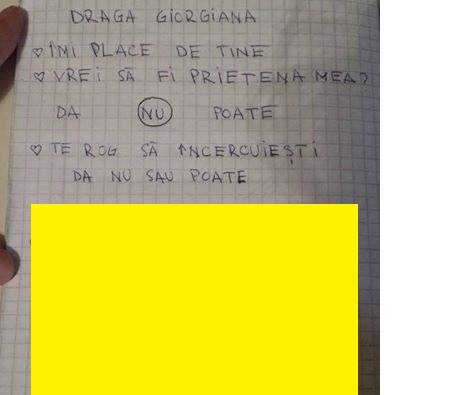 DRAGA GIORGIANA
♡ ÎMI PLACE DE TINE
♡ VREI SĂ FI PRIETENA MEA?
DA NU POATE
♡ TE ROG SĂ ÎNCERCUIEȘTI
DA NU SAU POATE